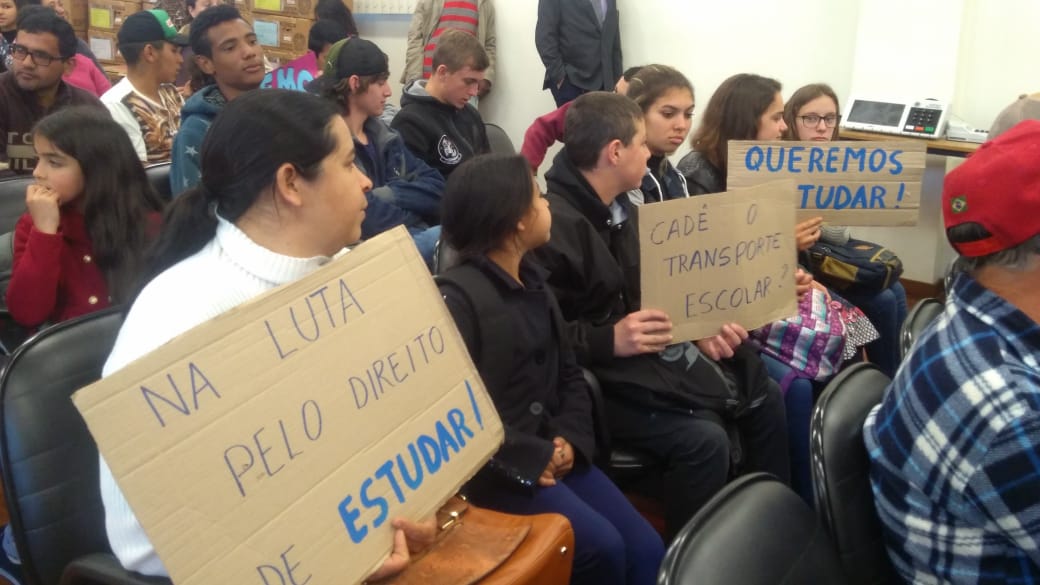 NA LUTA
PELO DIREITO
DE ESTUDAR!
CADÊ O
TRANSPORTE
ESCOLAR?
QUEREMOS
TUDAR!